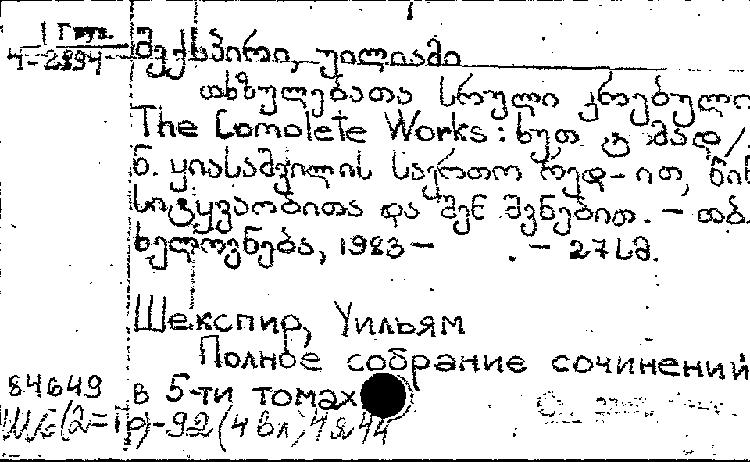 Груз.
4-2894
შექსპირი, უილიამი
თხზულებათა სრული კრებული
The Complete Works : ხუთ ტომად/
ნ. ყიასაშვილის საერთო რედ-ით, წინ
სიტყვაობითა და შენ შვნებით. – თბ.
ხელოვნება, 1983 – . – 27სმ.
Шекспир, Уильям
Полное собрание сочинений
84649 в 5-ти томах
Ш6(2=Гр)-92(4Вл)